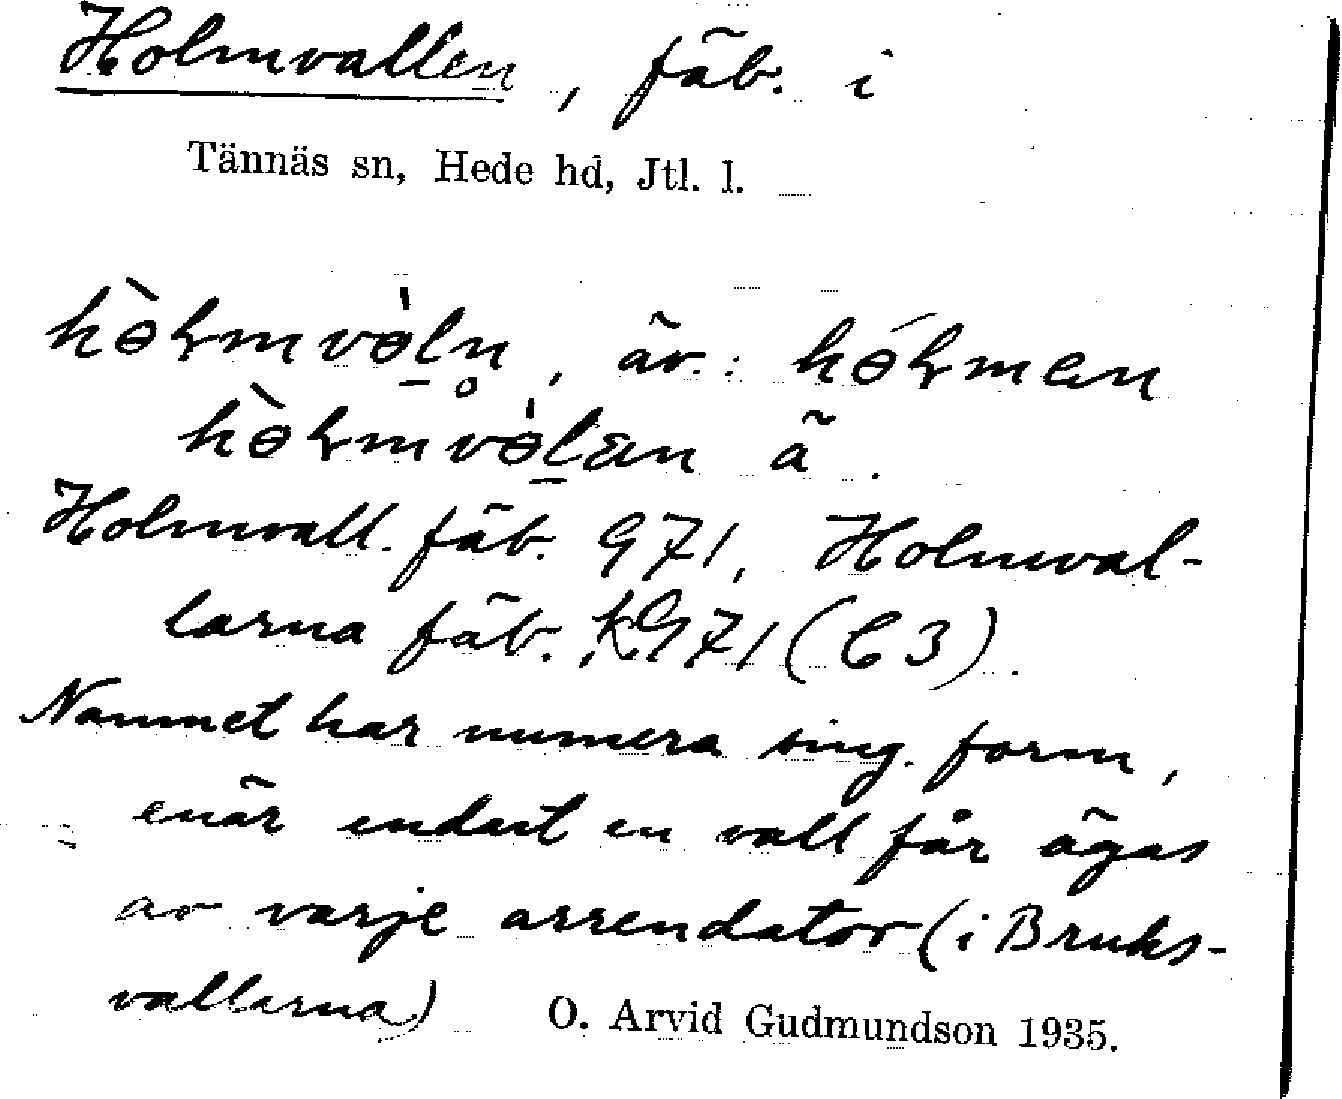 Holmvallen, fäb. i
Tännäs sn, Hede hd, Jtl. l.
hɵ̀ɽmvɵ̀ḷn̥, äv.: hɵ́ɽman
hɵ̀ɽmvɵ̀ḷan ä.
Holmvall. fäb. G71, Holmval-
larna fäb. KG71 (C3).
Namnet har numera sing. form,
enär endast en vall får ägas
av varje arrendator (i Bruks-
vallarna) O. Arvid Gudmundson 1935.